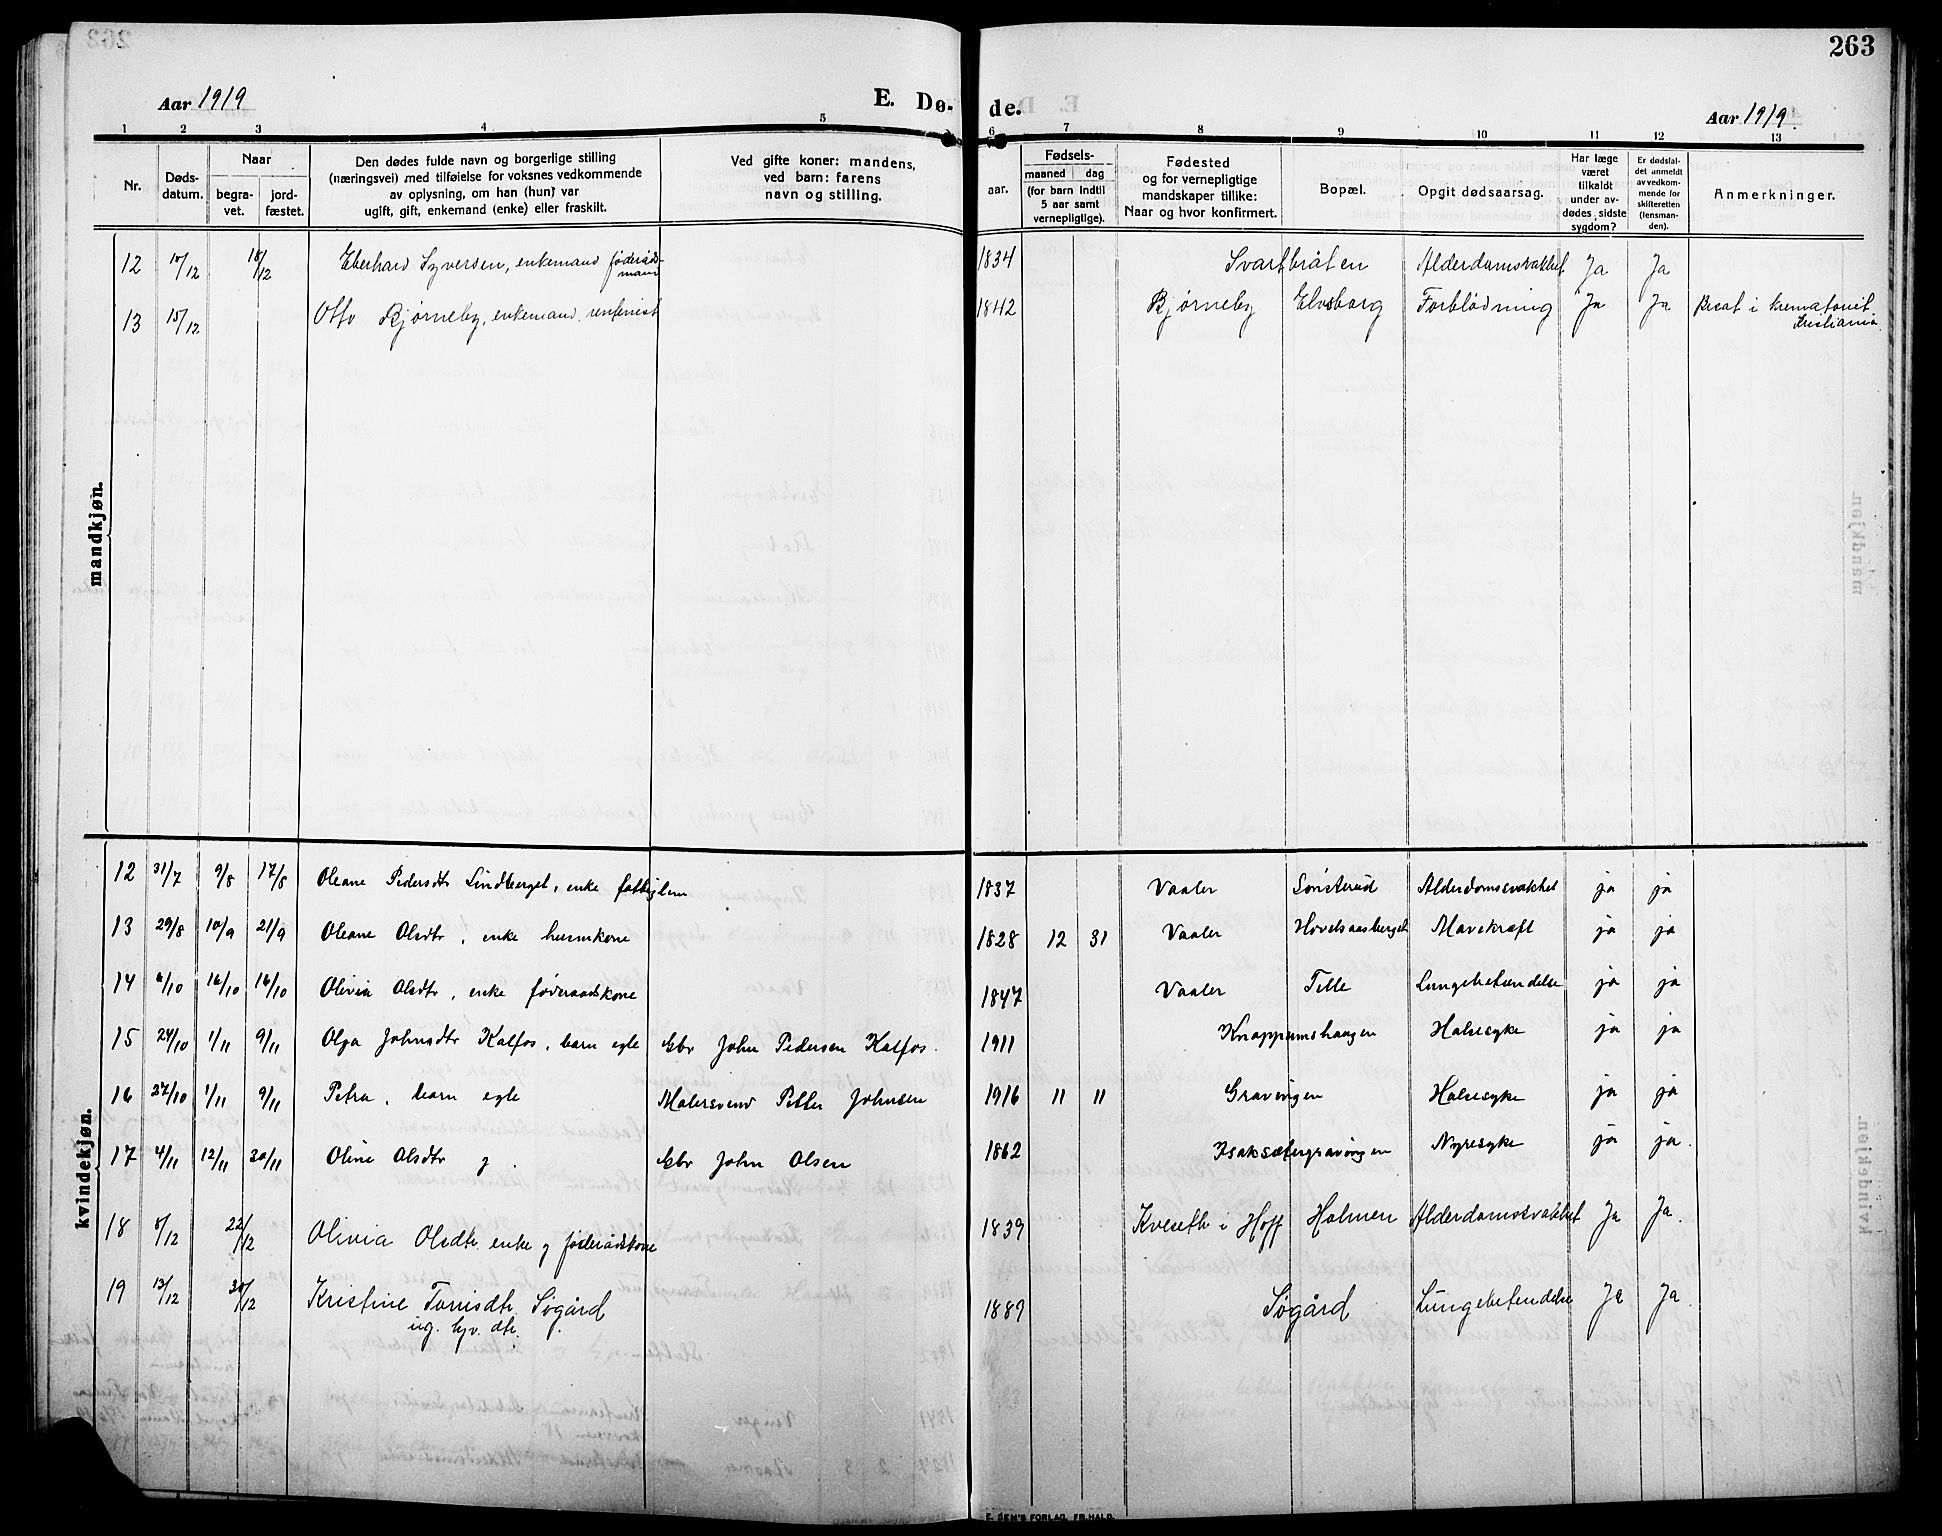 263
Aar 1919
E. Dø-
de.
Aar 1919.
1 2 3 4 5 6 7 8 9 10 11 12 13
Nr.
Døds-
datum.
Naar
begra-
vet.
jord-
fæstet.
Den dødes fulde navn og borgerlige stilling
(næringsvei) med tilføielse for voksnes vedkommende
av oplysning, om han (hun) var
ugift, gift, enkemand (enke) eller fraskilt.
Ved gifte koner: mandens,
ved barn: farens
navn og stilling.
Fødsels-
aar.
maaned dag
(for barn indtil
5 aar samt
vernepligtige).
Fødested
og for vernepligtige
mandskaper tillike:
Naar og hvor konfirmert.
Bopæl.
Opgit dødsaarsag.
Har læge
været
tilkaldt
under av-
dødes sidste
sygdom?
Er dødsfal-
det anmeldt
av vedkom-
mende for
skifteretten
(lensman-
den).
Anmerkninger.
mandkjøn.
12 10/12 18/12 Eberhard Syversen, enkemand føderåds-
mand
1834 Svartbråten Alderdomssvakhet Ja Ja
13 15/12 Otto Bjørneby, enkemand, rentenist
1842 Bjørneby Elvsborg Forblødning Ja Ja Besat i krematoriet
Kristiania
kvindekjøn.
12 31/7 9/8 17/8 Oleane Pedersdtr Lindberget, enke fattiglem 1837 Vaaler Sønsterud Alderdomssvakhet ja ja
13 29/8 10/9 21/9 Oleane Olsdtr, enke husmkone 1828 12 31 Vaaler Hovelsaasberget Mavekræft ja ja
14 6/10 16/10 16/10 Olivia Olsdtr, enke føderaadskone 1847 Vaaler Telle Lungebetændelse ja ja
15 24/10 1/11 9/11 Olga Johnsdtr Kalfos, barn egte Gbr John Pedersen Kalfos. 1911 Knappumshaugen Halssyke ja ja
16 27/10 1/11 9/11 Petra, barn egte Malersvend Petter Johnsen 1916 11 11 Gravingen Halssyke ja ja
17 4/11 12/11 30/11 Oline Olsdtr g. Gbr John Olsen 1862 Isaksætergravingen Nyresyke ja ja.
18 8/12 22/12 Olivia Olsdtr. enke g føderådskone 1839 Kveseth i Hoff Holmen Alderdomssvakhet Ja Ja.
19 13/12 30/12 Kristine Tonisdtr. Søgård
ug. hjv. dtr.
1889 Søgård Lungebetendelse Ja Ja.
E. SEM'S FORLAG, FR.HALD.